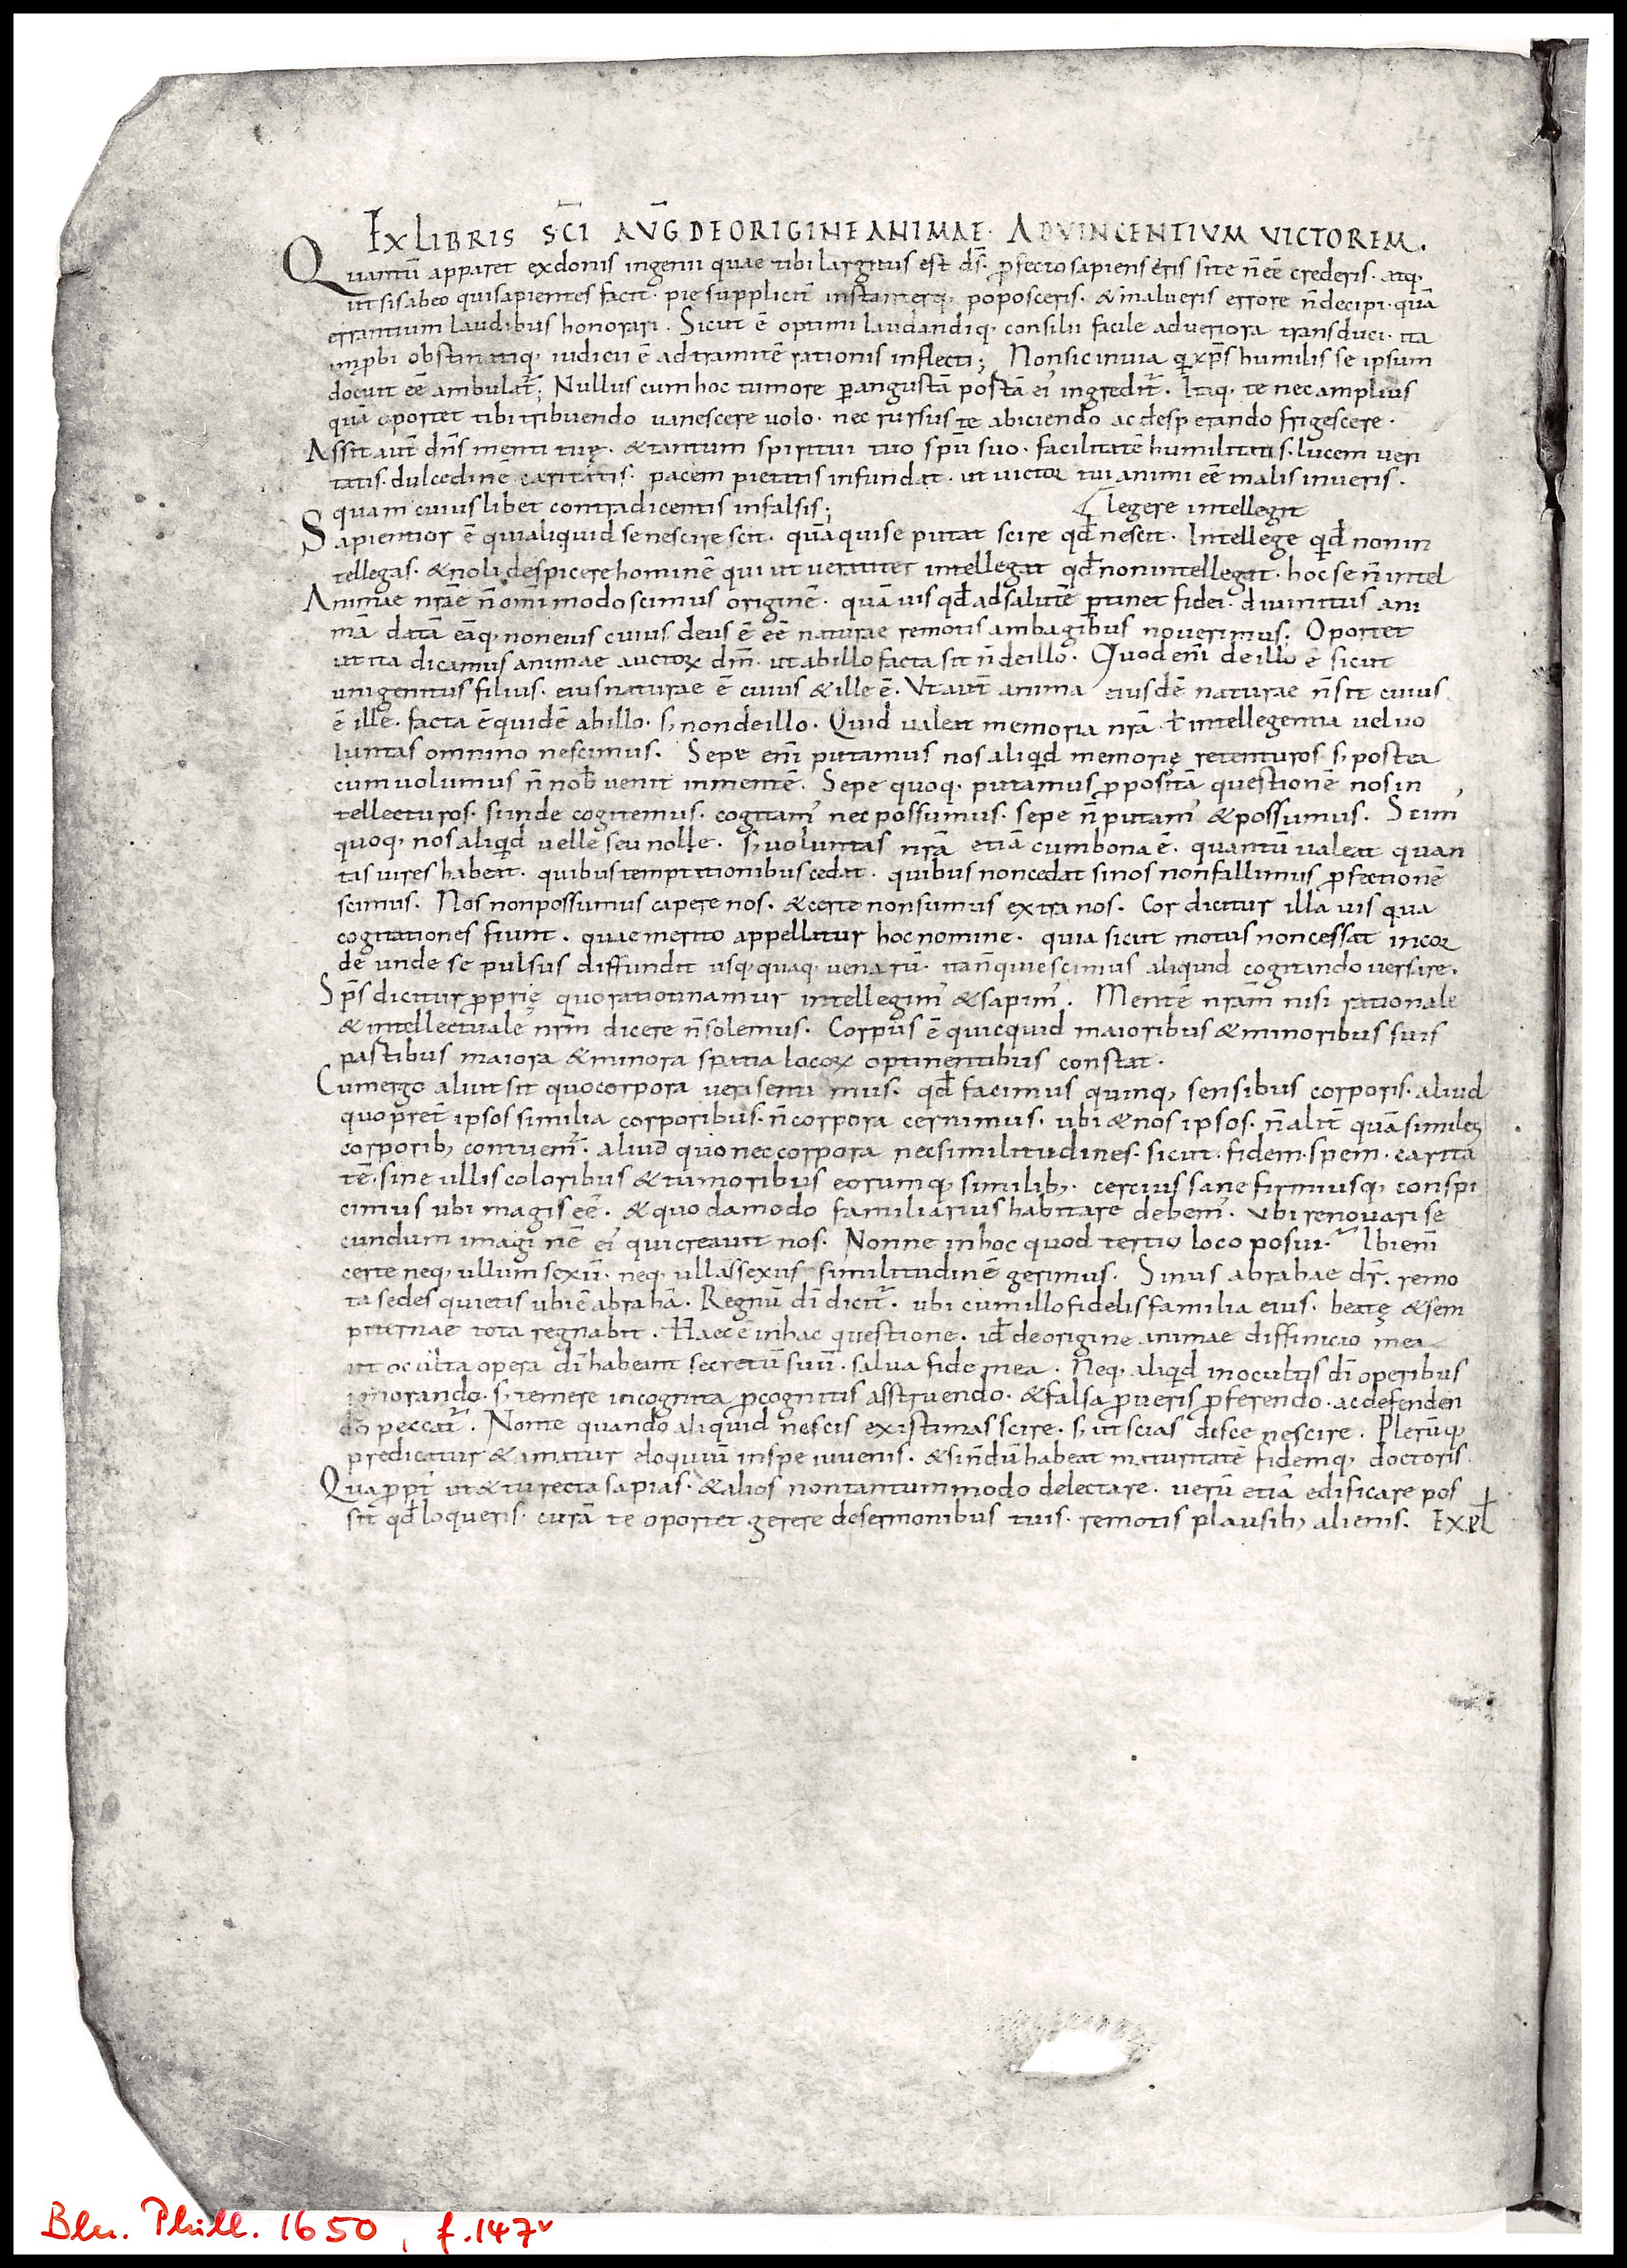 Ex Libris Sc̄i Av̄g De Origine Animae· Ad Vincentivm Victorem.
Quantū apparet ex donis ingenii quae tibi largitus est ds̄. ꝓfecto sapiens eris si te n̄ eē crederis. atq·
ut sis ab eo qui sapientes facit. pie suppliciť instanterq· poposceris. & malueris errore n̄ decipi. quā
errantium laudibus honorari. Sicut ē optimi laudandiq· consilii facile ad veriora transduci. ita
improbi obstinatiq· iudicii ē ad tramitē rationis inflecti; Non sic in via q̄ xp̄s humilis se ipsum
docuit eē ambulat̄; Nullus cum hoc tumore ꝑ angustā portā ei' ingredit̄. Itaq· te nec amplius
quā oportet tibi tribuendo vanescere volo. nec rursus te abiciendo ac desperando frigescere.
Assit aut̄ dn̄s menti tuę. & tantum spiritui tuo sp̄u suo. facilitatē humilitatis. lucem veri
tatis. dulcedinē caritatis. pacem pietatis infundat. ut victor tui animi eē malis in veris.
quam cuiuslibet contradicentis in falsis;
legere intellegit
Sapientior ē qui aliquid se nescire scit. quā qui se putat scire qđ nescit. Intellege qid non in
tellegas. & noli despicere hominē qui ut veraciter intellegat qđ non intellegat. hoc se n̄ intel
Animae nr̄ae n̄ omi modo scimus originē. quāvis qđ ad salutē ꝑtinet fidei. divinitus ani
mā datā eāq· non eius cuius deus ē eē naturae remotis ambagibus noverimus. Oportet
ut ita dicamus animae auctoꝝ dm̄. ut ab illo facta sit n̄ de illo. Quod eni de illo ē sicut
unigenitus filius. eius naturae ē cuius & ille ē. Ut aut̄ anima eiusdē naturae n̄ sit cuius
ē ille. facta ē quidē ab illo. s; non de illo. Quid valeat memoria nr̄a ł intellegentia vel vo
luntas omnino nescimus. Sepe eni putamus nos aliqid memorię retenturos s; postea
cum volumus n̄ nob̄ venit in mentē. Sepe quoq· putamus ꝓpositā questionē nos in
tellecturos. si inde cogitemus. cogitam' nec possumus. sepe n̄ putam' & possumus. Scim'
quoq· nos aliqid velle seu nolle. s; voluntas nr̄a etiā cum bona ē. quantū valeat quan
tas vires habeat. quibus temptationibus cedat. quibus non cedat si nos non fallimus ꝓfectionē
scimus. Nos non possumus capere nos. & certe non sumus extra nos. Cor dicitur illa vis qua
cogitationes fiunt. quae merito appellatur hoc nomine. quia sicut motus non cessat in cor
de unde se pulsus diffundit usq· quaq· venarū. ita n̄ quiescimus aliquid cogitando versare.
Sp̄s dicitur ꝓprię quo ratiotinamur intellegim' & sapim'. Mentē nr̄am nisi rationale
& intellectuale nr̄m dicere n̄ solemus. Corpus ē quicquid maioribus & minoribus suis
partibus maiora & minora spatia locoꝝ optinentibus constat.
Cum ergo aliut sit quo corpora veri sentimus. qđ facimus quinq; sensibus corporis. aliud
quo pret̄ ipsos similia corporibus. n̄ corpora cernimus. ubi & nos ipsos. n̄ alit̄ quā similes
corporib; contuem̄. aliud quo nec corpora nec similitudines. sicut. fidem. spem. carita
tē. sine ullis coloribus & tumoribus eorumq; similib;. cercius sane firmiusq; conspi
cimus ubi magis eē. & quodamodo familiarius habitare debem'. Ubi renovari se
cundum imaginē ei' qui creavit nos. Nonne in hoc quod tertio loco posui. Ibi eni
certe neq; ullum sexū. neq; ullā sexus similitudinē gerimus. Sinus abrahae dr̄. remo
ta sedes quietis ubi ē abrahā. Regnū dī dicit̄. ubi cum illo fidelis familia eius. beatę & sem
piternae tota regnabit. Haec ē in hac questione. id̄ de origine animae diffinicio mea
ut oculta opera dī habeant secretū suū. salva fide mea. Neq; aliqid in ocultis dī operibus
ignorando. s; temere incognita ꝓ cognitis asstruendo. & falsa ꝓ veris ꝓferendo. ac defenden
do peccat̄. Noli te quando aliquid nescis existimas scire. s; ut scias disce nescire. Plerūq;
predicatur & amatur eloquiū in spe iuvenis. & si n̄dū habeat maturitatē fidemq; doctoris.
Quapropt̄ ut & tu recta sapias. & alios non tantummodo delectare. verū etiā edificare pos
sit qđ loqueris. curā te oportet gerere de sermonibus tuis. remotis plausib; alienis. Expł
Bln. Phill. 1650, f. 147v